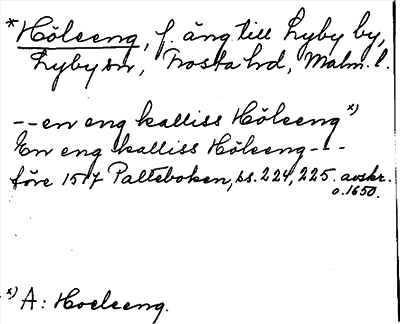 *Hölseng, f. äng till Lyby by,
Lyby sn, Frosta hd, Malm. l.
--en eng kalliss Hölseng x)
En eng kalliss Hölseng---
före 1517 Palteboken, ss. 224, 225. avskr.
o. 1650.
x) A: Hoelseng.